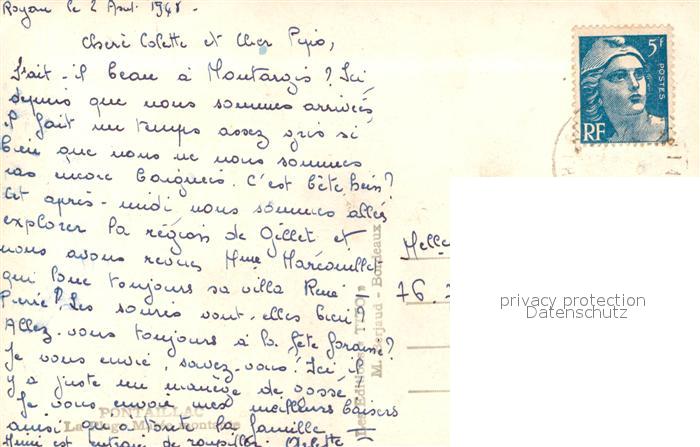 Royan le 2 Août 1948 -
Chère Colette et Cher Pepio,
Fait-il beau à Montargis ? Ici
depuis que nous sommes arrivés
il fait un temps assez gris si
bien que nous ne nous sommes
pas encore baignés. C'est bête hein ?
Cet après-midi nous sommes allés
explorer la région de Gillet et
nous avons revues Mme Marcouillet
qui loue toujours sa villa René
Pierre ? Les souris vont-elles bien ?
Allez-vous toujours à la fête foraine ?
Je vous envie, savez-vous ! Ici il
y a juste un manège de gosse.
Je vous envoie mes meilleurs baisers
ainsi qu'à toute la famille
Mimi est entrain de roupiller. Arlette
5F
POSTES
RF
Melle
76
PONTAILLAC
La Plage
Les Editions " "
M. - Bordeaux
privacy protection
Datenschutz